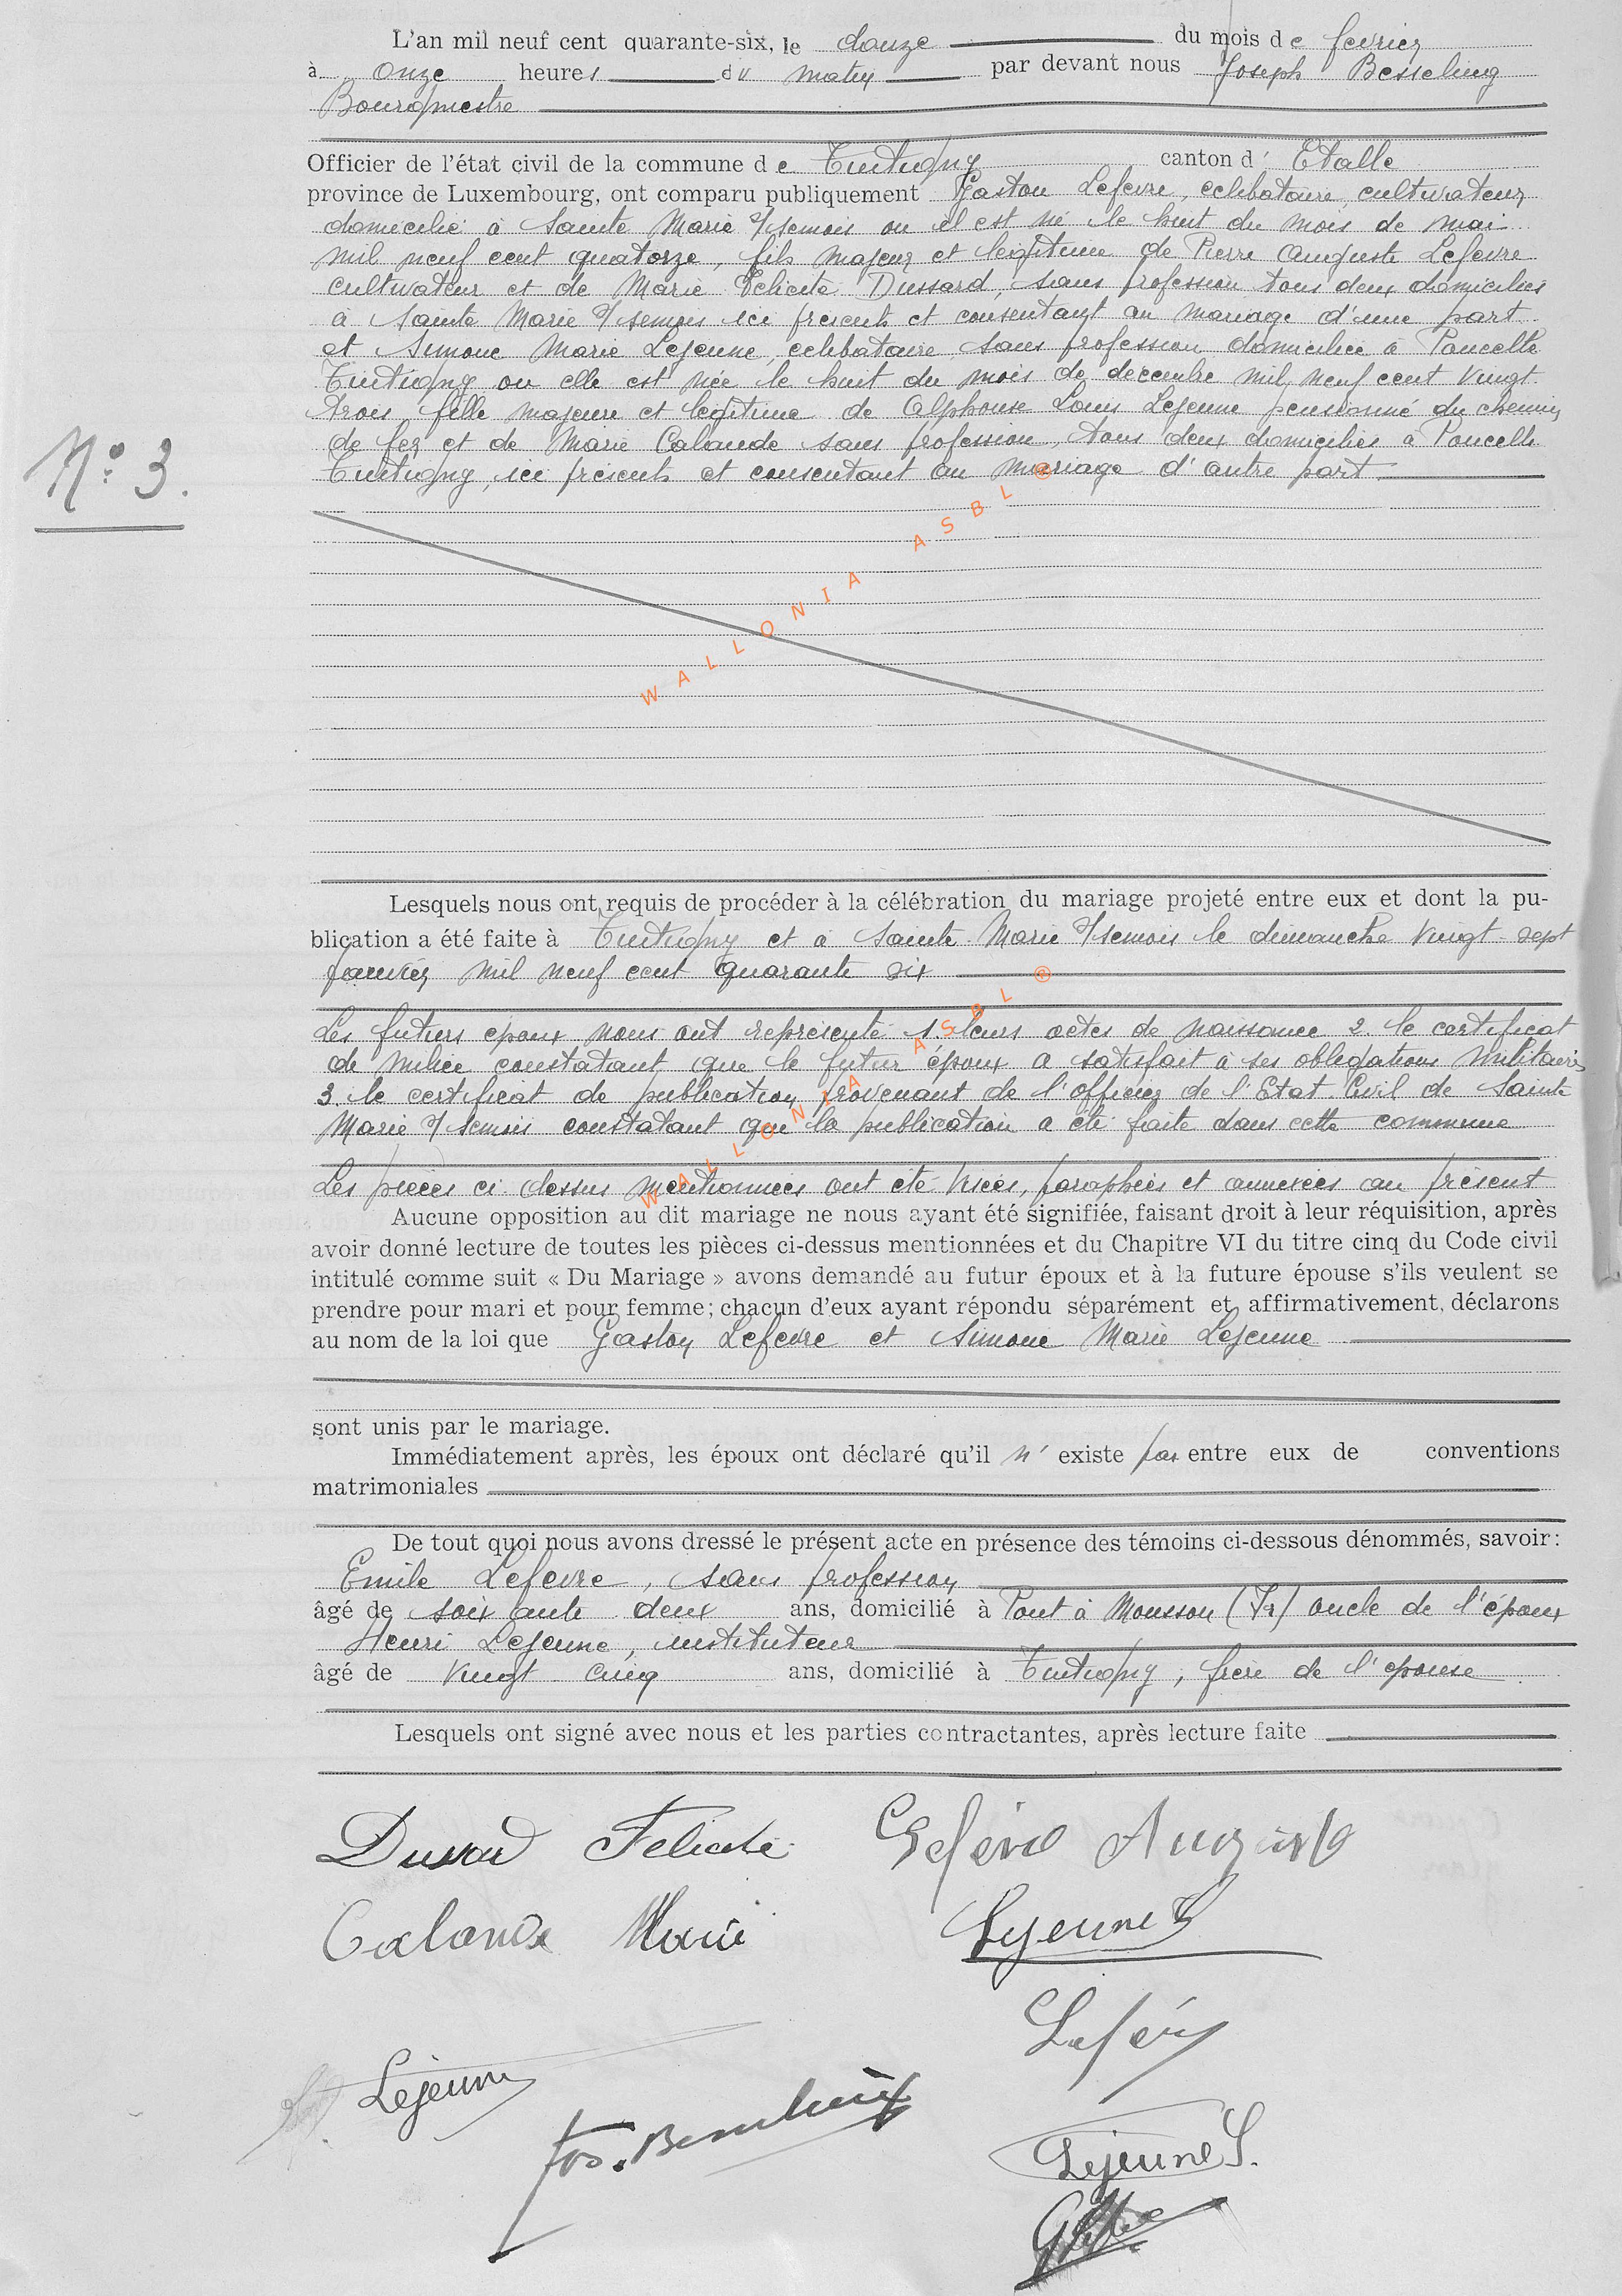 L'an mil neuf cent quarante-six, le douze du mois de fevrier
à Onze heures du matin par devant nous Joseph Besseling
Bourgmestre
Officier de l'état civil de la commune de Tintigny canton d' Etalle
province de Luxembourg, ont comparu publiquement Gaston Lefevre, celibataire, cultivateur
domicilié à Sainte Marie s/semois ou il est né le huit du mois de mai
mil neuf cent quatorze, fils majeur et legitime de Pierre Auguste Lefevre
cultivateur et de Marie Felicité Dussard, sans profession tous deux domicilies
à Sainte Marie s/semois ici presents et consentant au mariage d'une part
et Simone Marie Lejeune, celibataire sans profession domiciliée à Poncelle
Tintigny ou elle est née le huit du mois de decembre mil neuf cent vingt
trois fille majeure et legitime de Alphonse Louis Lejeune pensionné du chemin
de fer et de Marie Calande sans profession, tous deux domiciliés à Poncelle
Tintigny, ici presents et consentant au mariage d'autre part
N° 3.
WALLONIA ASBL ®
Lesquels nous ont requis de procéder à la célébration du mariage projeté entre eux et dont la pu-
blication a été faite à Tintigny et à Sainte Marie s/semois le dimanche vingt-sept
janvier mil neuf cent quarante six
Les futurs époux nous ont representé 1. leurs actes de naissance 2. le certificat
de milice constatant que le futur époux a satisfait à ses obligations militaires
3. le certificat de publication provenant de l'officier de l'Etat-Civil de Sainte
Marie s/semois constatant que la publication a été faite dans cette commune
WALLONIA ASBL ®
Les pièces ci dessus mentionnées ont été visées, paraphées et annexées au présent
Aucune opposition au dit mariage ne nous ayant été signifiée, faisant droit à leur réquisition, après
avoir donné lecture de toutes les pièces ci-dessus mentionnées et du Chapitre VI du titre cinq du Code civil
intitulé comme suit « Du Mariage » avons demandé au futur époux et à la future épouse s'ils veulent se
prendre pour mari et pour femme; chacun d'eux ayant répondu séparément et affirmativement, déclarons
au nom de la loi que Gaston Lefevre et Simone Marie Lejeune
sont unis par le mariage.
Immédiatement après, les époux ont déclaré qu'il n' existe pas entre eux de conventions
matrimoniales
De tout quoi nous avons dressé le présent acte en présence des témoins ci-dessous dénommés, savoir:
Emile Lefevre, sans profession
âgé de soixante deux ans, domicilié à Pont à Mousson (Fr) oncle de l'époux
Henri Lejeune, instituteur
âgé de vingt cinq ans, domicilié à Tintigny, frère de l'epouse
Lesquels ont signé avec nous et les parties contractantes, après lecture faite
Dussard Felicité Lefévre Auguste
Calande Marie Lejeune
Lejeune
Lejeune S.